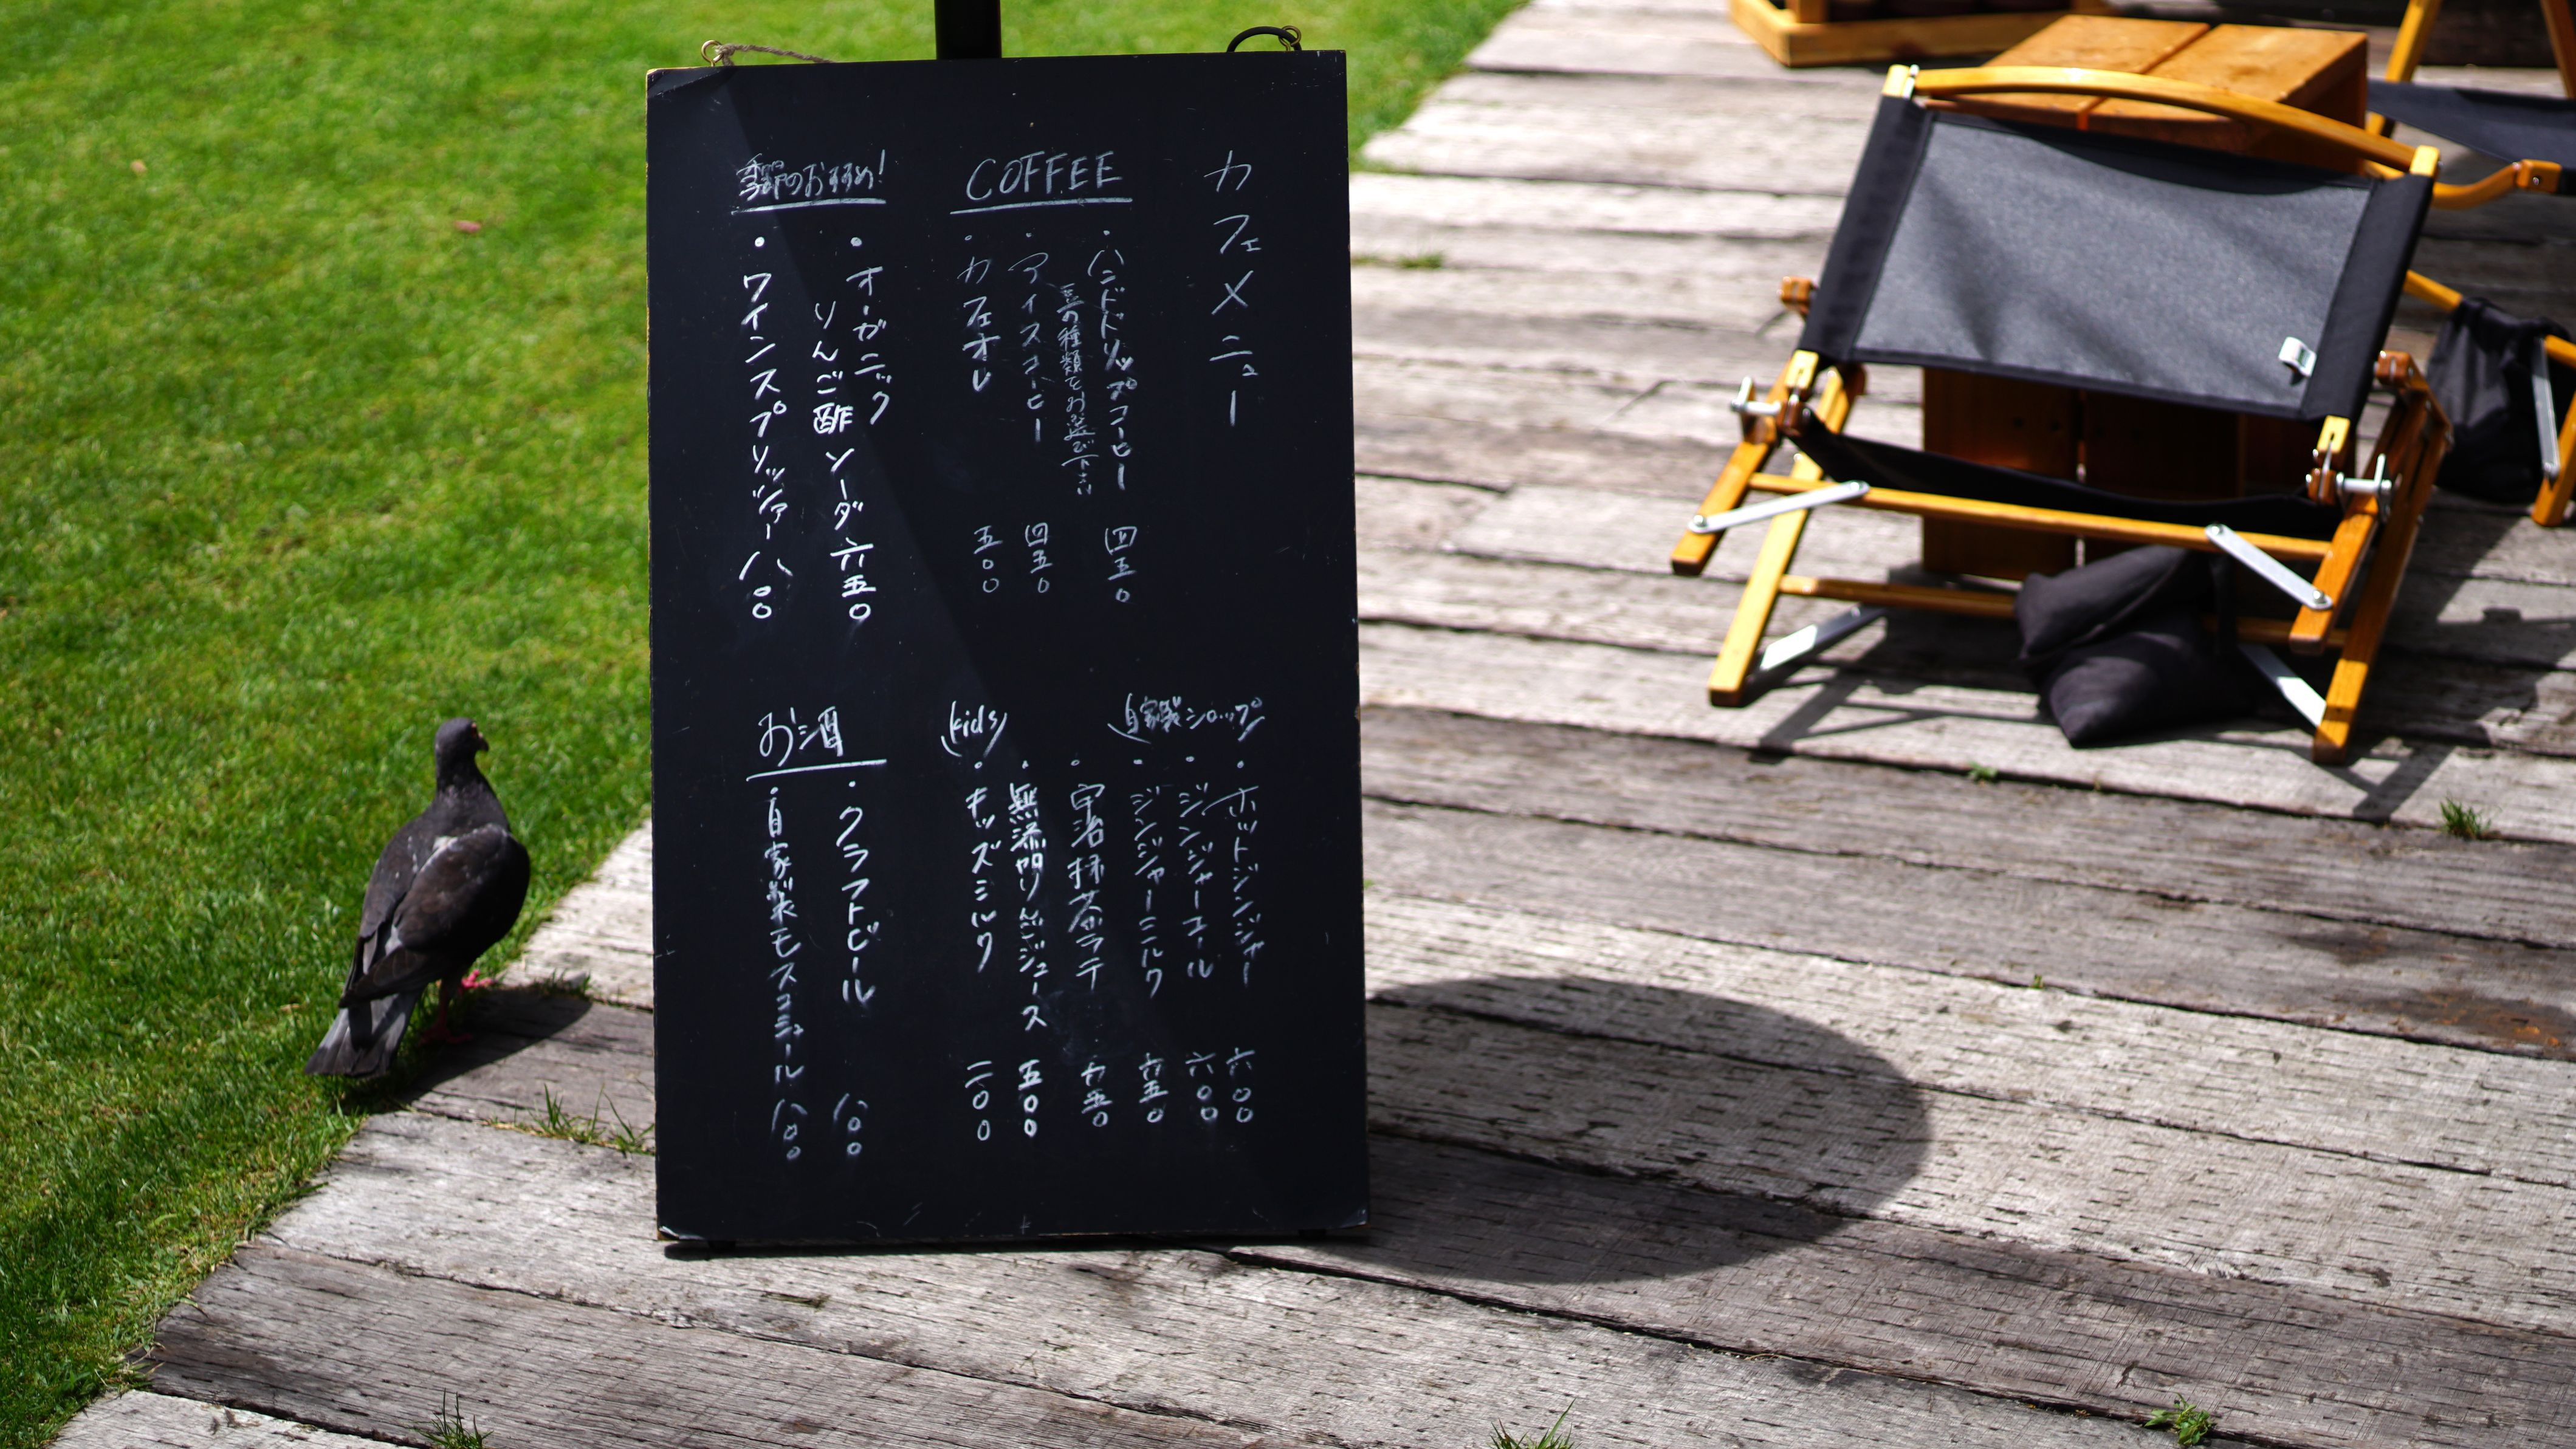 カフェメニュー
COFFEE
・ハンドドリップコーヒー 四五〇
豆の種類をお選び下さい
・アイスコーヒー 四五〇
・カフェオレ 五〇〇
季節のおすすめ!
・オーガニック
りんご酢ソーダ 六五〇
・ワインスプリッツァー 八〇〇
自家製シロップ
・ホットジンジャー 六〇〇
・ジンジャーエール 六〇〇
・ジンジャーミルク 六五〇
・宇治抹茶ラテ 五〇
(kids)
・無添加りんごジュース 五〇〇
・キッズミルク 二〇〇
お酒
・クラフトビール 八〇〇
・自家製モスコミュール 八〇〇